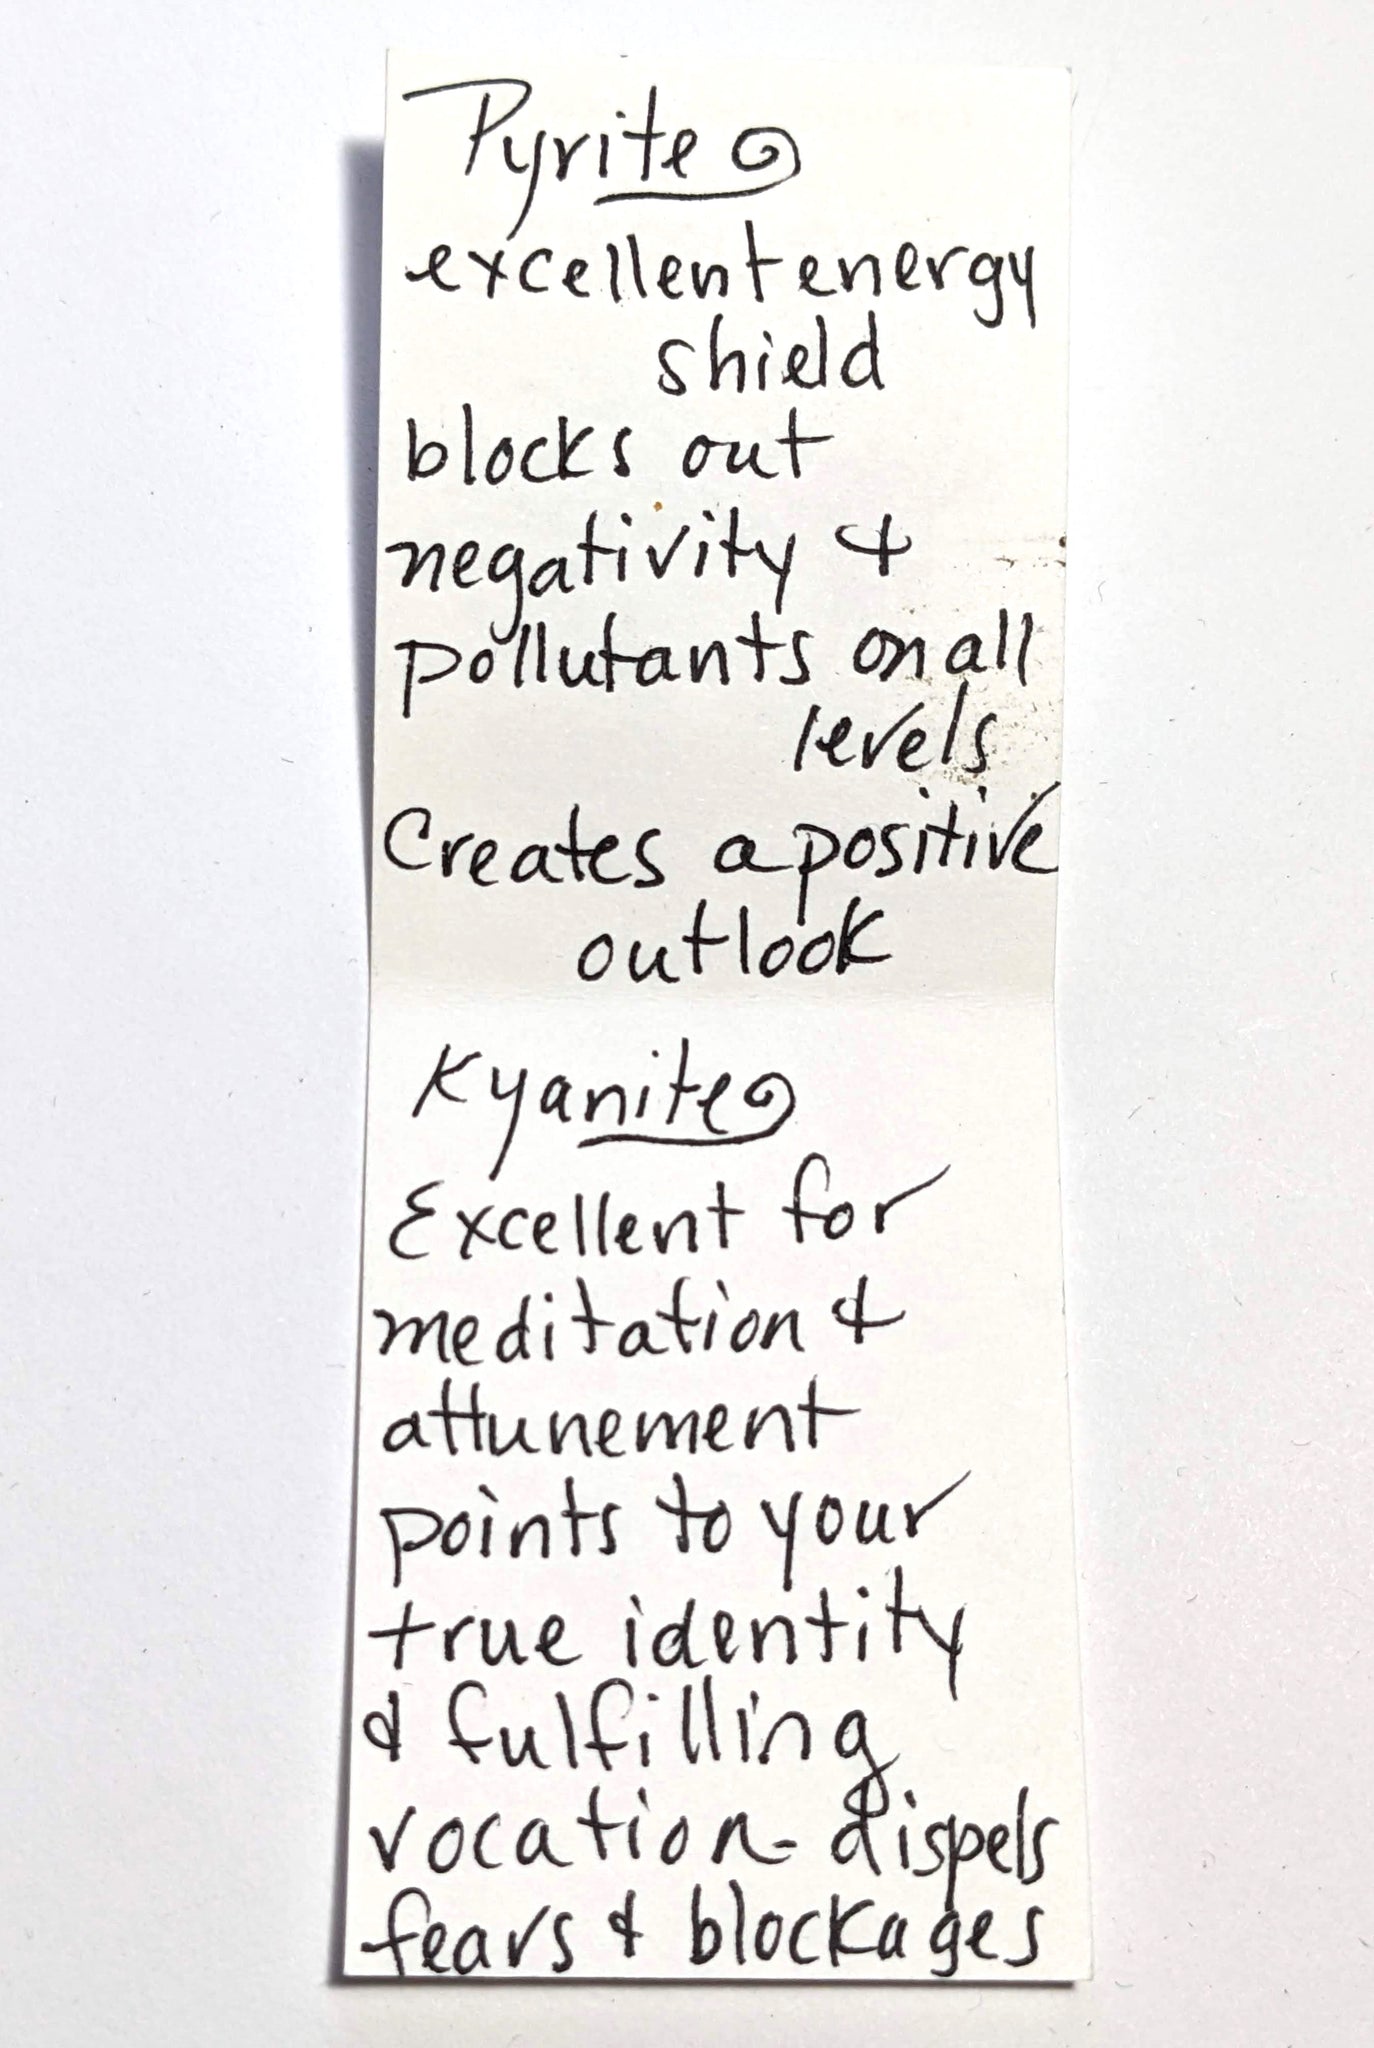 Pyrite
excellent energy
shield
blocks out
negativity &
pollutants on all
levels
Creates a positive
outlook
Kyanite
Excellent for
meditation &
attunement
points to your
true identity
& fulfilling
vocation - dispels
fears & blockages